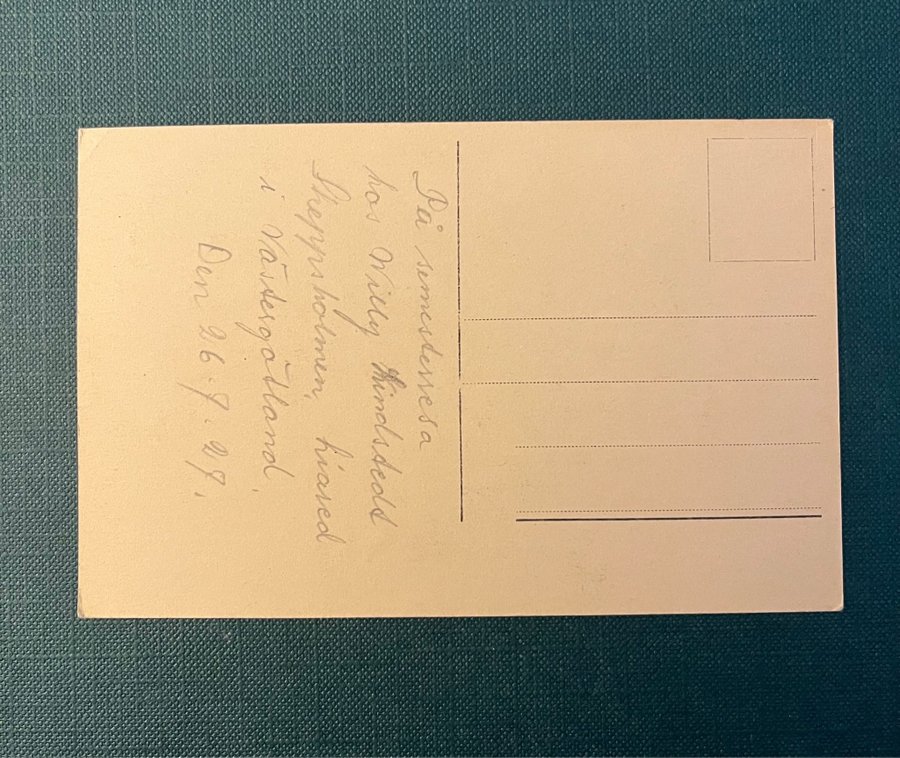 På semesterresa
hos Willy Lindstedt
Skeppsholmen, Liared
i Västergötland.
Den 26.7.27.